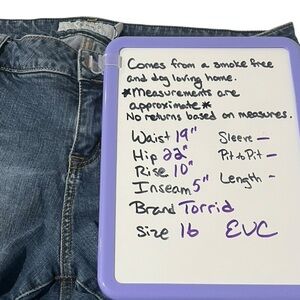 Comes from a smoke free
and dog loving home.
*Measurements are
approximate*
No returns based on measures.
Waist 19"
Hip 22"
Rise 10"
Inseam 5"
Sleeve -
Pit to Pit -
Length -
Brand Torrid
Size 16 EUC